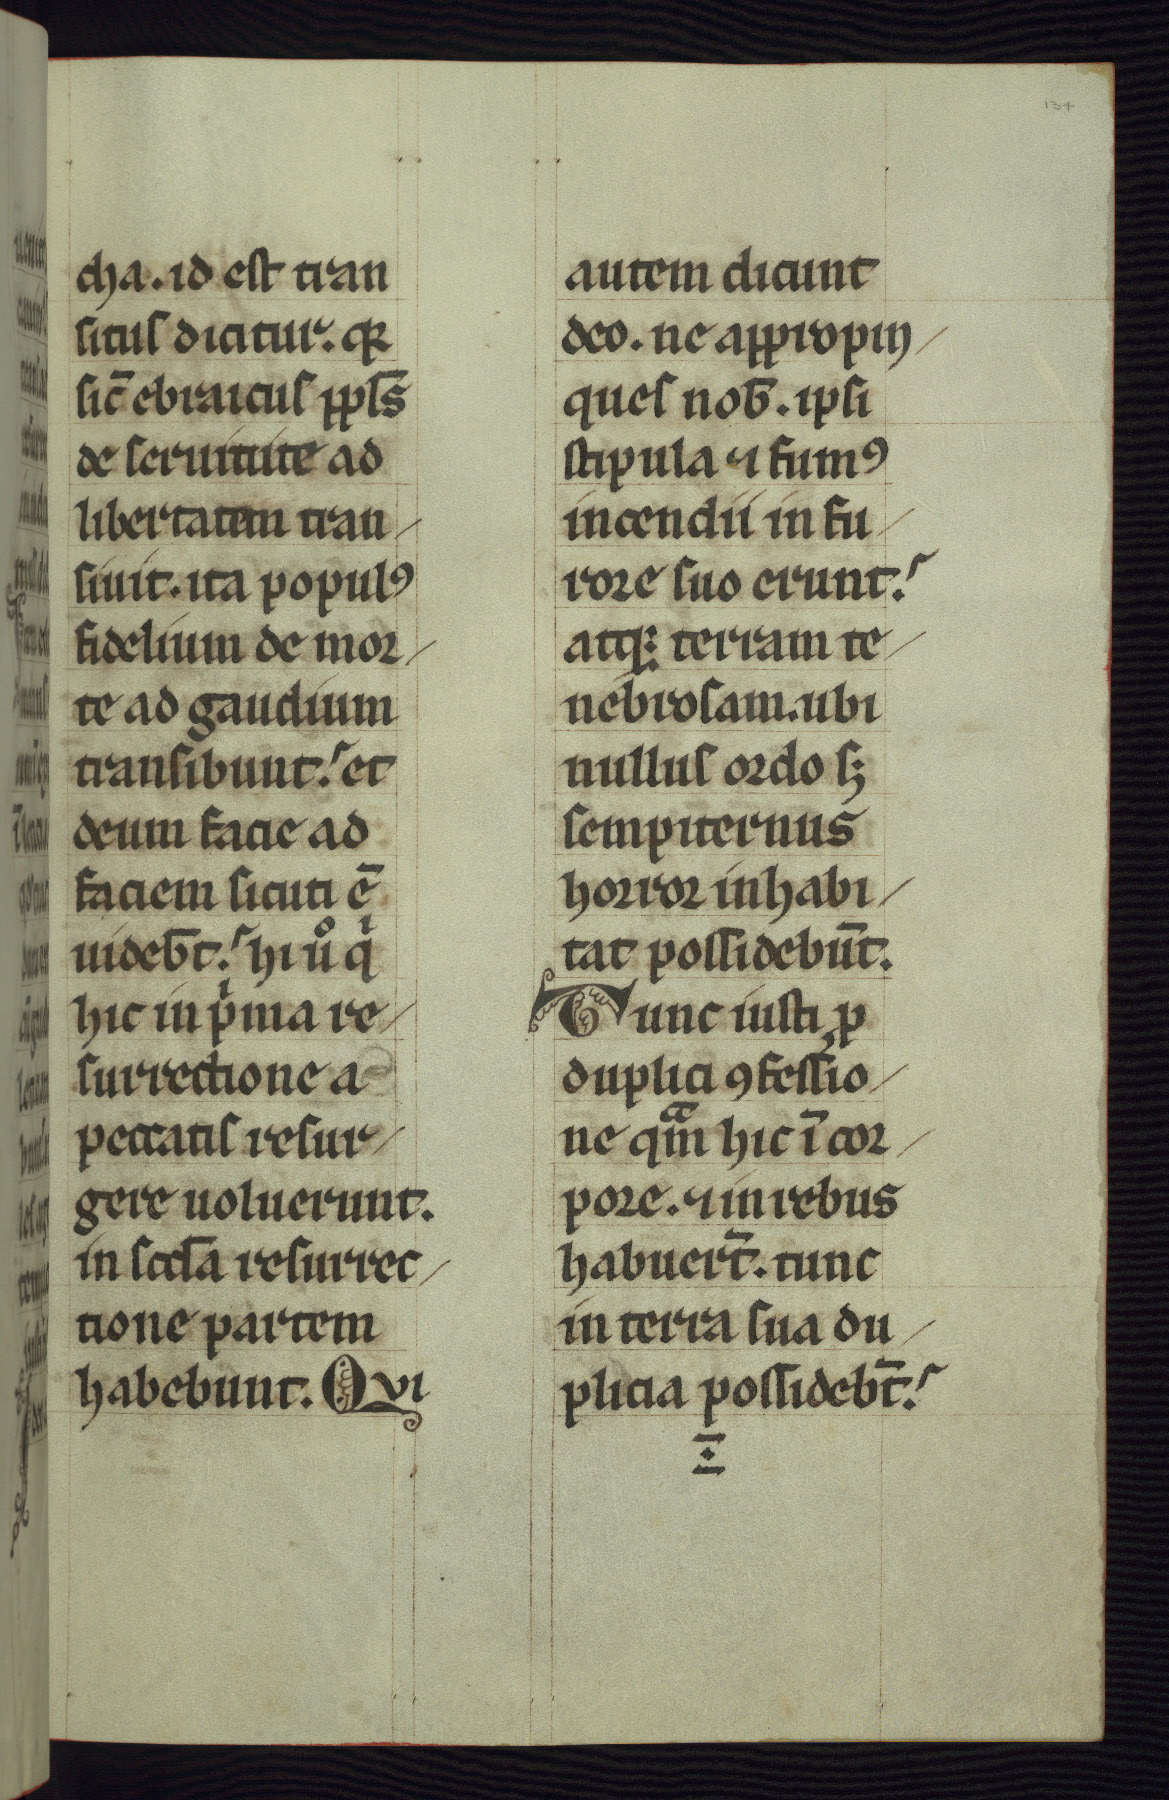 cha. id est tran
situs dicitur. qꝛ
sic̄ ebraicus pp̄ls
de seruitute ad
libertatem tran/
siuit. ita populꝰ
fidelium de mor/
te ad gaudium
transibunt. et
deum facie ad
faciem sicuti ē
uidebt̄. hi uͦ qͥ
hic in pͥma re/
surrectione a
peccatis resur/
gere uoluerunt.
in sc̄da resurrec/
tione partem
habebunt. Qvi
autem dicunt
deo. ne appropin/
ques nob̄. ipsi
stipula ⁊ fumꝰ
incendii in fu/
rore suo erunt.
atqꝫ terram te/
nebrosam. ubi
nullus ordo sꝫ
sempiternus
horror inhabi/
tat possidebūt.
Tunc iusti ꝓ
duplici ꝯfessio/
ne qᵃm hic ī cor/
pore. ⁊ in rebus
habuerт̄. tunc
in terra sua du/
plicia possidebt̄.
134